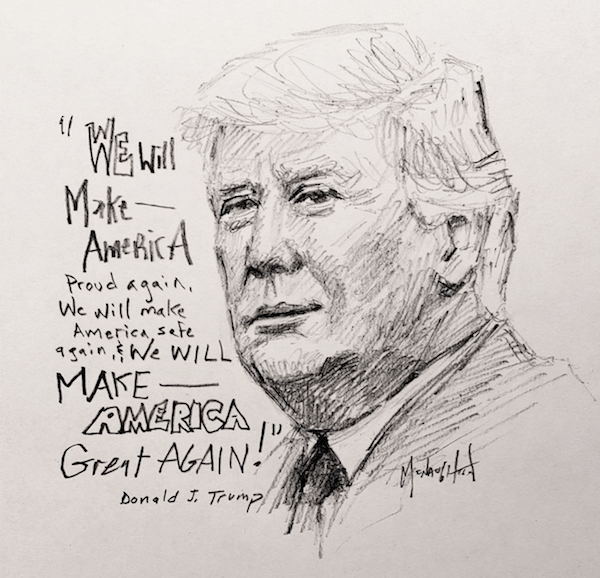 "WE Will
Make—
AMERICA
Proud again,
We will make
America safe
again, & WE WILL
MAKE—
AMERICA
Great AGAIN!"
Donald J. Trump